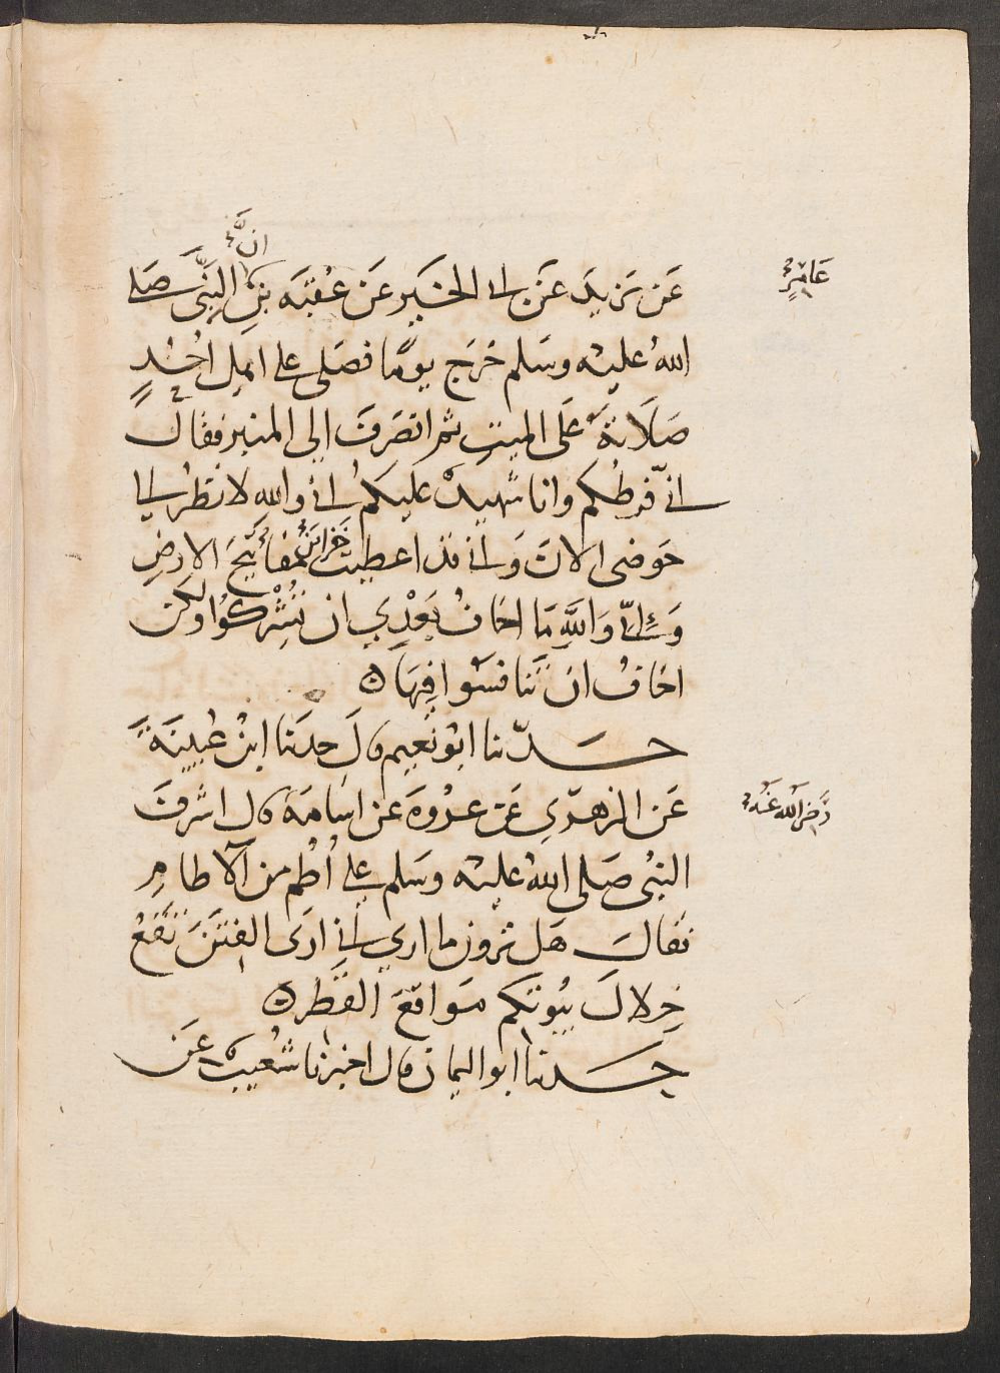 عامرٍ
انَّ
عَن يَزيدَ عَن ابي الخَيرِ عَن عُقبَه بنِ النَّبيَّ صَلى
اللهُ عليه وسَلم خرَج يومًا فصَلى على اهل اُحُدٍ
صَلَاتَهُ عَلى الميتِ ثم انصَرفَ الى المنبر فقالَ
اني فَرطُكم وانا شهيدٌ عليكم اني واللهِ لا نظُر الى
حَوضى الانَ وَاني قد اعطيت خَزائنَ مفاتيحَ الارضِ
وَانيّ وَاللَّهِ مَا اخَافُ بَعْدِي ان تُشْرِكُوا ولكن
اخَافُ ان تَنافسُوا فِيهَا ۞
حَـــدّثنا ابُو نُعَيم قالَ حدثَنا ابنُ عُيَينَةَ
عَن الزهرّيِ عَن عروَةَ عَن اسَامَة قال اشرفَ
رَضى اللهُ عَنهُ
النبُى صَلى اللهُ عليه وسَلم على اُطُم من الآطامِ
فقالَ هَل ترون ما ارى اني ارَى الفِتَنَ تقَعُ
خِلالَ بيُوتكم مَواقعَ القَطر ۞
حـــدثنا ابو اليمان قال اخبرنا شُعيبٌ عَن